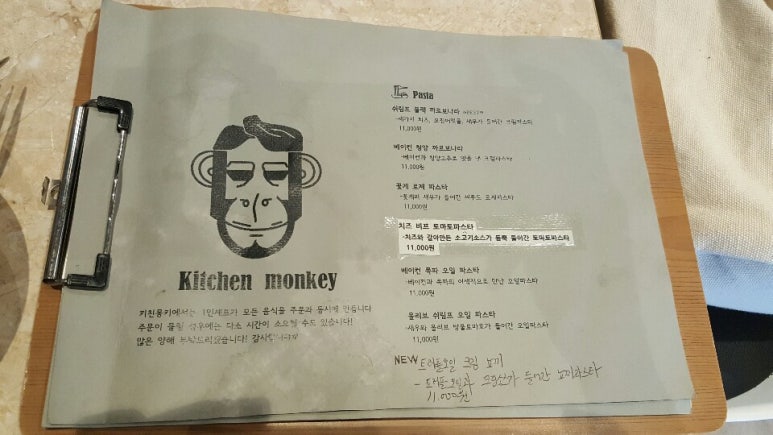 Kitchen monkey
키친몽키에서는 1인셰프가 모든 음식을 주문과 동시에 만듭니다
주문이 몰릴 경우에는 다소 시간이 소요될 수도 있습니다!
많은 양해 부탁드리겠습니다! 감사합니다
Pasta
쉬림프 블랙 까르보나라
11,000원
베이컨 청양 까르보나라
-베이컨과 청양고추로 맛을 낸 크림파스타
11,000원
꽃게 로제 파스타
-꽃게와 새우가 들어간 매콤한 로제파스타
11,000원
치즈 비프 토마토파스타
-치즈와 갈아만든 소고기소스가 듬뿍 들어간 토마토파스타
11,000원
베이컨 쪽파 오일 파스타
-베이컨과 쪽파의 이색적으로 만난 오일파스타
11,000원
올리브 쉬림프 오일 파스타
-새우와 올리브 방울토마토가 들어간 오일파스타
11,000원
NEW 트러플오일 크림 뇨끼
- 트러플오일과 크림소스가 들어간 뇨끼파스타
11,000원